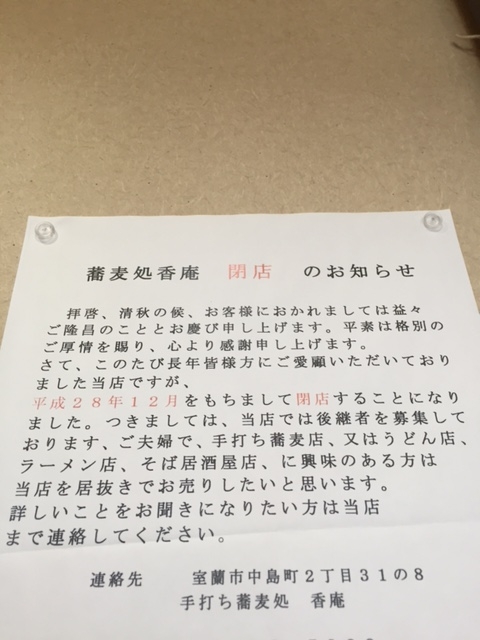 蕎麦処香庵　閉店　のお知らせ
拝啓、清秋の候、お客様におかれましては益々
ご隆昌のこととお慶び申し上げます。平素は格別の
ご厚情を賜り、心より感謝申し上げます。
さて、このたび長年皆様方にご愛顧いただいており
ました当店ですが、
平成２８年１２月をもちまして閉店することになり
ました。つきましては、当店では後継者を募集して
おります、ご夫婦で、手打ち蕎麦店、又はうどん店、
ラーメン店、そば居酒屋店、に興味のある方は
当店を居抜きでお売りしたいと思います。
詳しいことをお聞きになりたい方は当店
まで連絡してください。
連絡先　　室蘭市中島町２丁目３１の８
手打ち蕎麦処　香庵